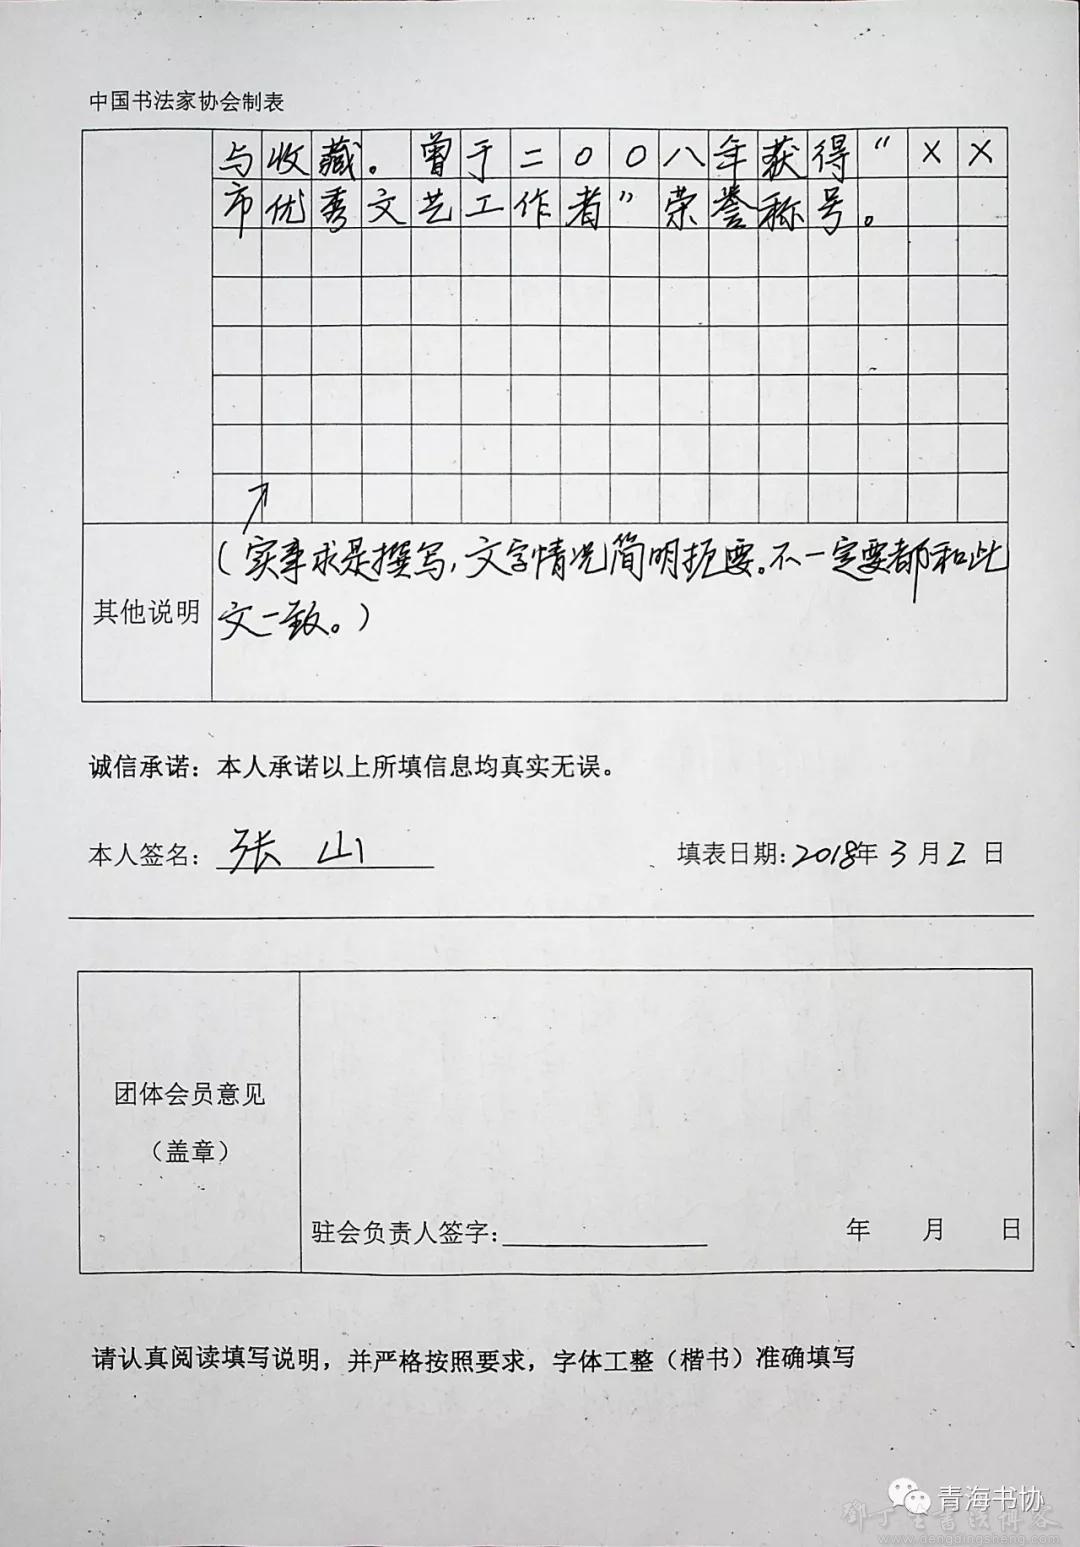 中国书法家协会制表
与收藏。曾于二〇〇八年获得“××
市优秀文艺工作者”荣誉称号。
(实事求是撰写,文字情况简明扼要。不一定要都和此
其他说明
文一致。)
诚信承诺：本人承诺以上所填信息均真实无误。
本人签名：张山 填表日期:2018年3月2日
团体会员意见
（盖章）
驻会负责人签字: 年 月 日
请认真阅读填写说明，并严格按照要求，字体工整（楷书）准确填写
青海书协
www.dengdingsheng.com